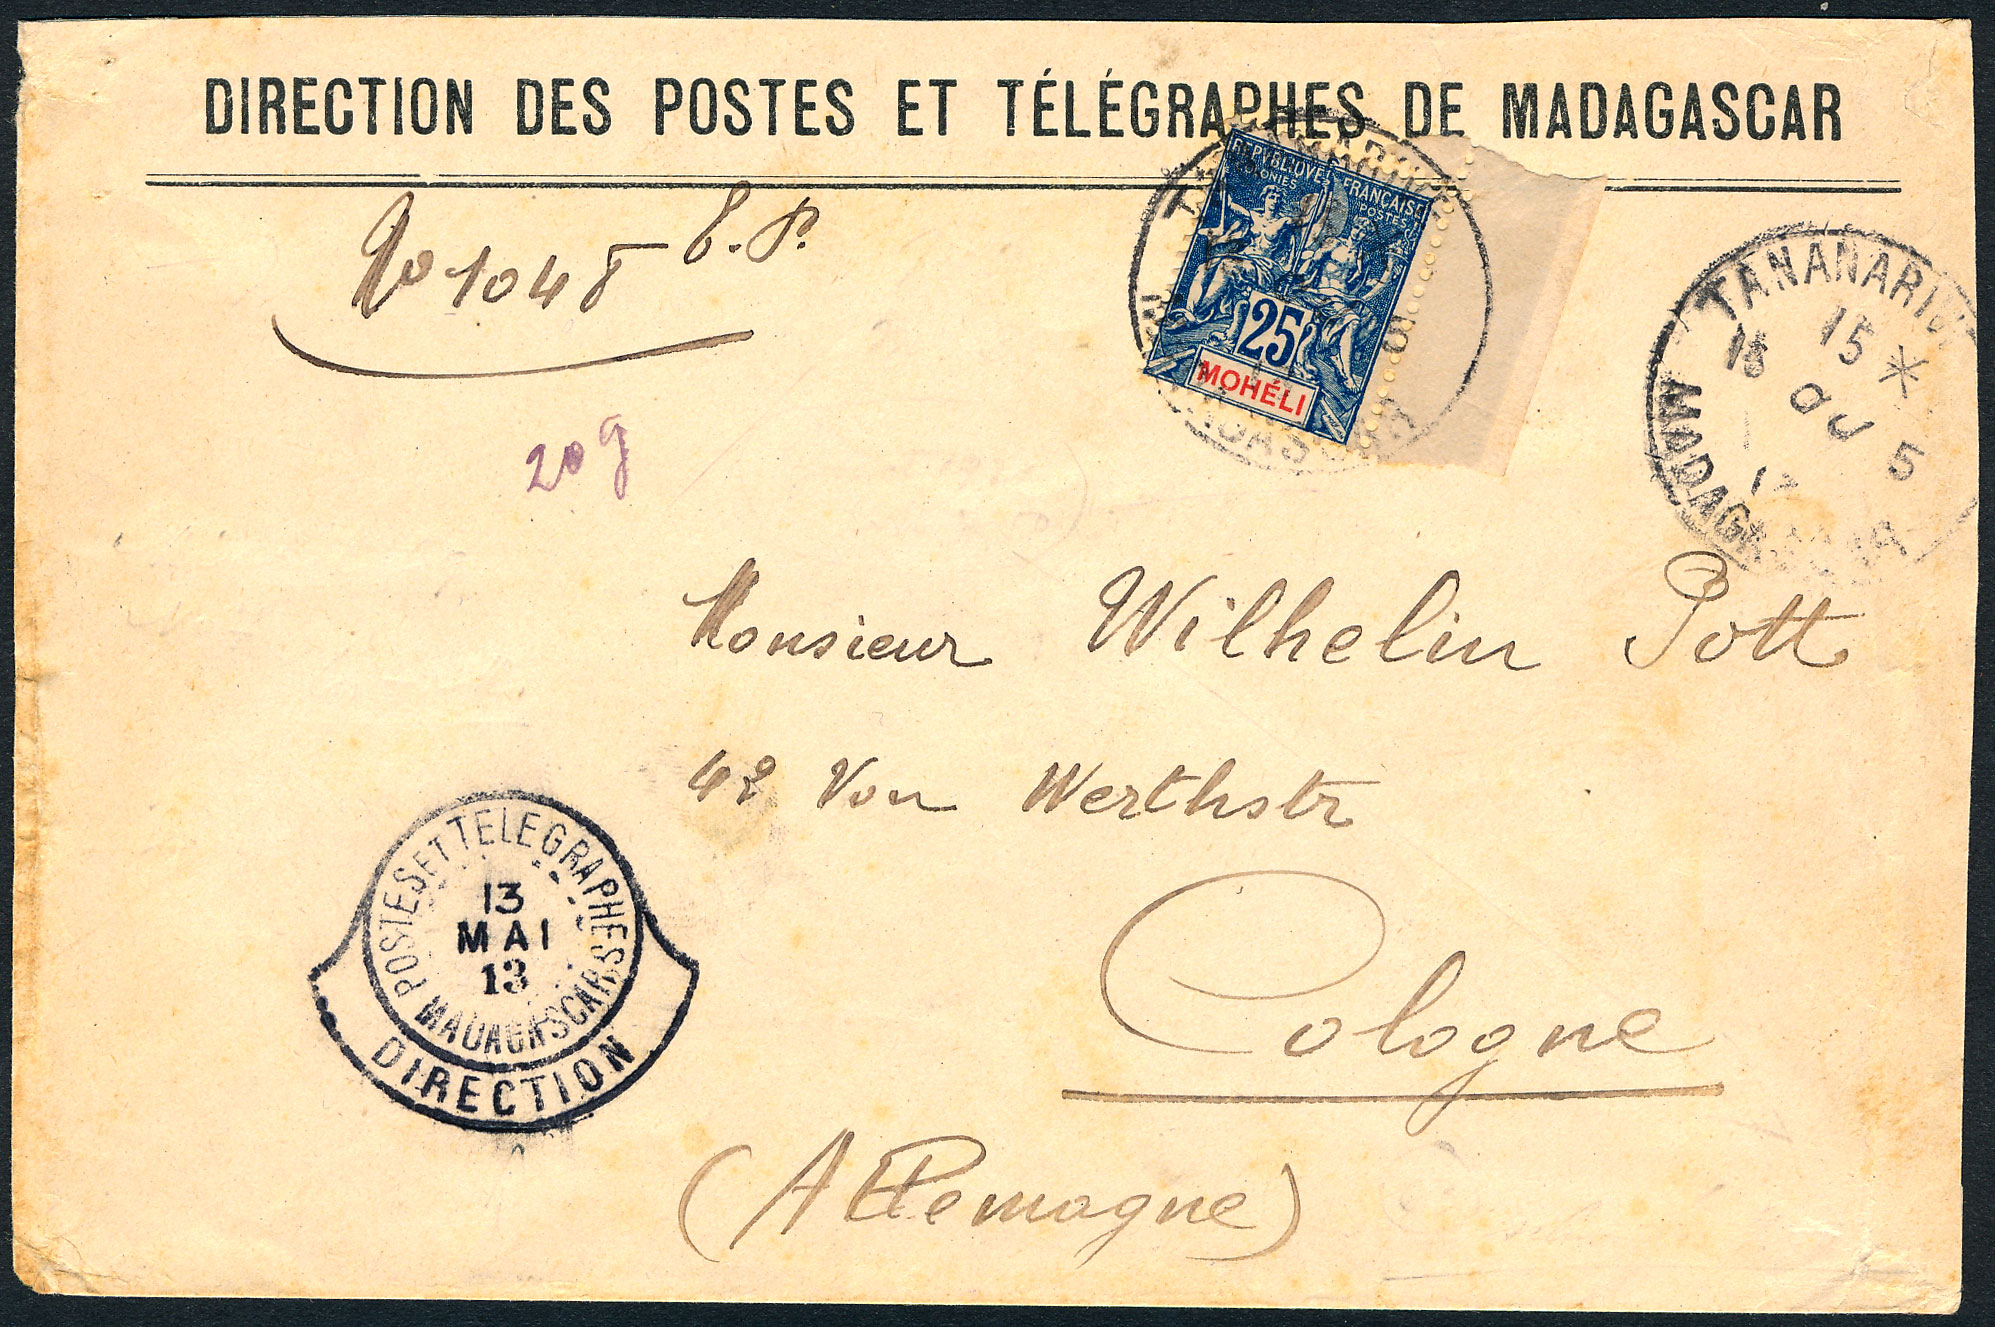 DIRECTION DES POSTES ET TÉLÉGRAPHES DE MADAGASCAR
No 1048 E.P.
REPUBLIQUE FRANÇAISE
COLONIES POSTES
25
MOHÉLI
TANANARIV
15 *
15
5
MADAGASCAR
20 g
Monsieur Wilhelm Pott
42 Von Werthstr
Cologne
(Allemagne)
POSTES ET TELEGRAPHES
13
MAI
13
MADAGASCAR
DIRECTION